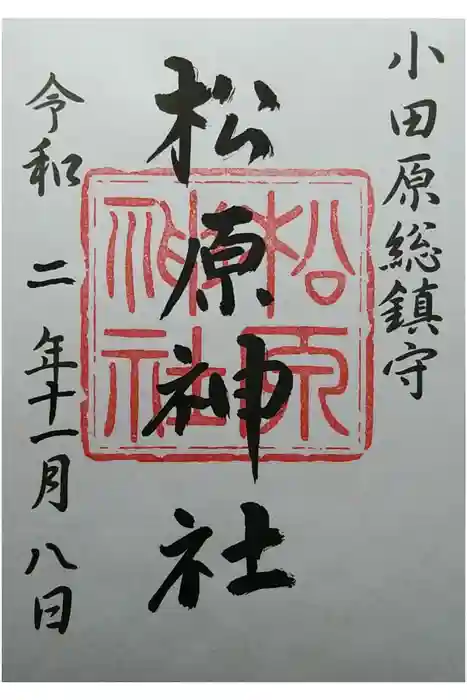 小田原総鎮守
松原神社
松原
神社
令和二年十一月八日